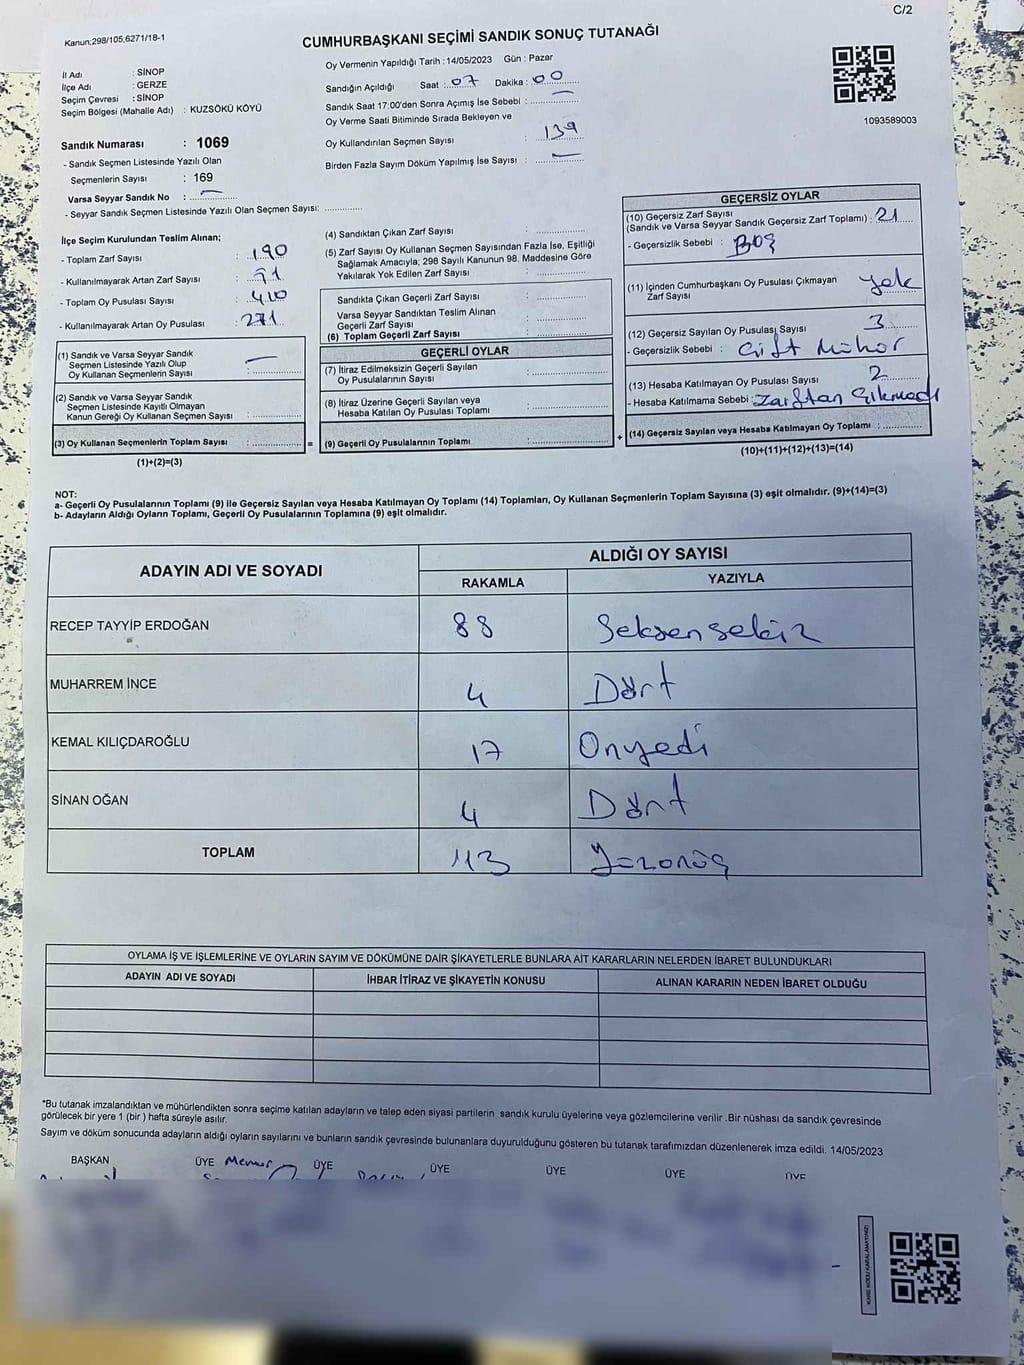 C/2
Kanun;298/105;6271/18-1
CUMHURBAŞKANI SEÇİMİ SANDIK SONUÇ TUTANAĞI
İl Adı : SİNOP
İlçe Adı : GERZE
Seçim Çevresi : SİNOP
Seçim Bölgesi (Mahalle Adı) : KUZSÖKÜ KÖYÜ
Sandık Numarası : 1069
- Sandık Seçmen Listesinde Yazılı Olan
Seçmenlerin Sayısı : 169
Varsa Seyyar Sandık No : —
- Seyyar Sandık Seçmen Listesinde Yazılı Olan Seçmen Sayısı: ............
Oy Vermenin Yapıldığı Tarih : 14/05/2023 Gün : Pazar
Sandığın Açıldığı Saat : 07 Dakika : 00
Sandık Saat 17:00'den Sonra Açımış İse Sebebi : —
Oy Verme Saati Bitiminde Sırada Bekleyen ve
Oy Kullandırılan Seçmen Sayısı : 139
Birden Fazla Sayım Döküm Yapılmış İse Sayısı : —
1093589003
İlçe Seçim Kurulundan Teslim Alınan;
- Toplam Zarf Sayısı : 190
- Kullanılmayarak Artan Zarf Sayısı :
- Toplam Oy Pusulası Sayısı : 410
- Kullanılmayarak Artan Oy Pusulası : 271
(1) Sandık ve Varsa Seyyar Sandık
Seçmen Listesinde Yazılı Olup
Oy Kullanan Seçmenlerin Sayısı : —
(2) Sandık ve Varsa Seyyar Sandık
Seçmen Listesinde Kayıtlı Olmayan
Kanun Gereği Oy Kullanan Seçmen Sayısı :
(3) Oy Kullanan Seçmenlerin Toplam Sayısı : =
(1)+(2)=(3)
(4) Sandıktan Çıkan Zarf Sayısı :
(5) Zarf Sayısı Oy Kullanan Seçmen Sayısından Fazla İse, Eşitliği
Sağlamak Amacıyla; 298 Sayılı Kanunun 98. Maddesine Göre
Yakılarak Yok Edilen Zarf Sayısı :
Sandıkta Çıkan Geçerli Zarf Sayısı :
Varsa Seyyar Sandıktan Teslim Alınan
Geçerli Zarf Sayısı :
(6) Toplam Geçerli Zarf Sayısı :
GEÇERLİ OYLAR
(7) İtiraz Edilmeksizin Geçerli Sayılan
Oy Pusulalarının Sayısı :
(8) İtiraz Üzerine Geçerli Sayılan veya
Hesaba Katılan Oy Pusulası Toplamı :
(9) Geçerli Oy Pusulalarının Toplamı : +
GEÇERSİZ OYLAR
(10) Geçersiz Zarf Sayısı
(Sandık ve Varsa Seyyar Sandık Geçersiz Zarf Toplamı) : 21
- Geçersizlik Sebebi : Boş
(11) İçinden Cumhurbaşkanı Oy Pusulası Çıkmayan
Zarf Sayısı : yok
(12) Geçersiz Sayılan Oy Pusulası Sayısı : 3
- Geçersizlik Sebebi : Çift Mühür
(13) Hesaba Katılmayan Oy Pusulası Sayısı : 2
- Hesaba Katılmama Sebebi : Zarftan Çıkmadı
(14) Geçersiz Sayılan veya Hesaba Katılmayan Oy Toplamı :
(10)+(11)+(12)+(13)=(14)
NOT:
a- Geçerli Oy Pusulalarının Toplamı (9) ile Geçersiz Sayılan veya Hesaba Katılmayan Oy Toplamı (14) Toplamları, Oy Kullanan Seçmenlerin Toplam Sayısına (3) eşit olmalıdır. (9)+(14)=(3)
b- Adayların Aldığı Oyların Toplamı, Geçerli Oy Pusulalarının Toplamına (9) eşit olmalıdır.
ADAYIN ADI VE SOYADI ALDIĞI OY SAYISI
RAKAMLA YAZIYLA
RECEP TAYYİP ERDOĞAN 88 Seksensekiz
MUHARREM İNCE 4 Dört
KEMAL KILIÇDAROĞLU 17 Onyedi
SİNAN OĞAN 4 Dört
TOPLAM 113 Yüzonüç
OYLAMA İŞ VE İŞLEMLERİNE VE OYLARIN SAYIM VE DÖKÜMÜNE DAİR ŞİKAYETLERLE BUNLARA AİT KARARLARIN NELERDEN İBARET BULUNDUKLARI
ADAYIN ADI VE SOYADI İHBAR İTİRAZ VE ŞİKAYETİN KONUSU ALINAN KARARIN NEDEN İBARET OLDUĞU
*Bu tutanak imzalandıktan ve mühürlendikten sonra seçime katılan adayların ve talep eden siyasi partilerin sandık kurulu üyelerine veya gözlemcilerine verilir .Bir nüshası da sandık çevresinde
görülecek bir yere 1 (bir ) hafta süreyle asılır.
Sayım ve döküm sonucunda adayların aldığı oyların sayılarını ve bunların sandık çevresinde bulunanlara duyurulduğunu gösteren bu tutanak tarafımızdan düzenlenerek imza edildi. 14/05/2023
BAŞKAN ÜYE Memur ÜYE ÜYE ÜYE ÜYE ÜYE
KARE KODU KARALAMAYINIZ!